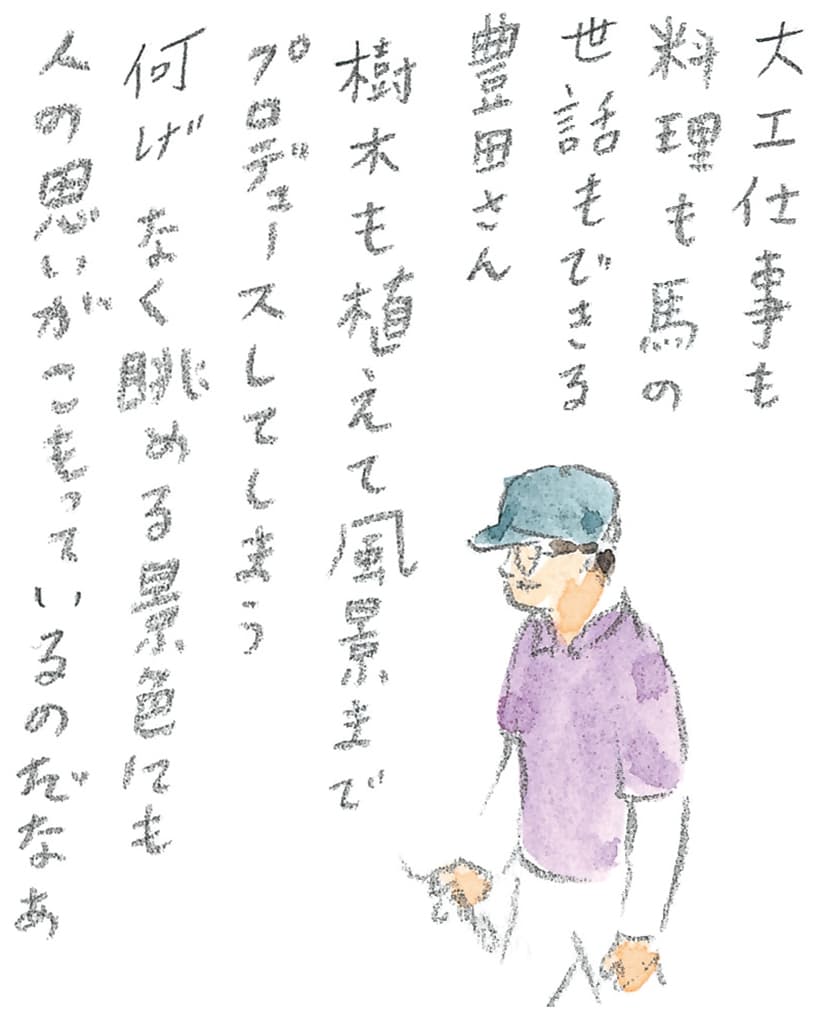 大工仕事も
料理も馬の
世話もできる
豊田さん
樹木も植えて風景まで
プロデュースしてしまう
何げなく眺める景色にも
人の思いがこもっているのだなぁ